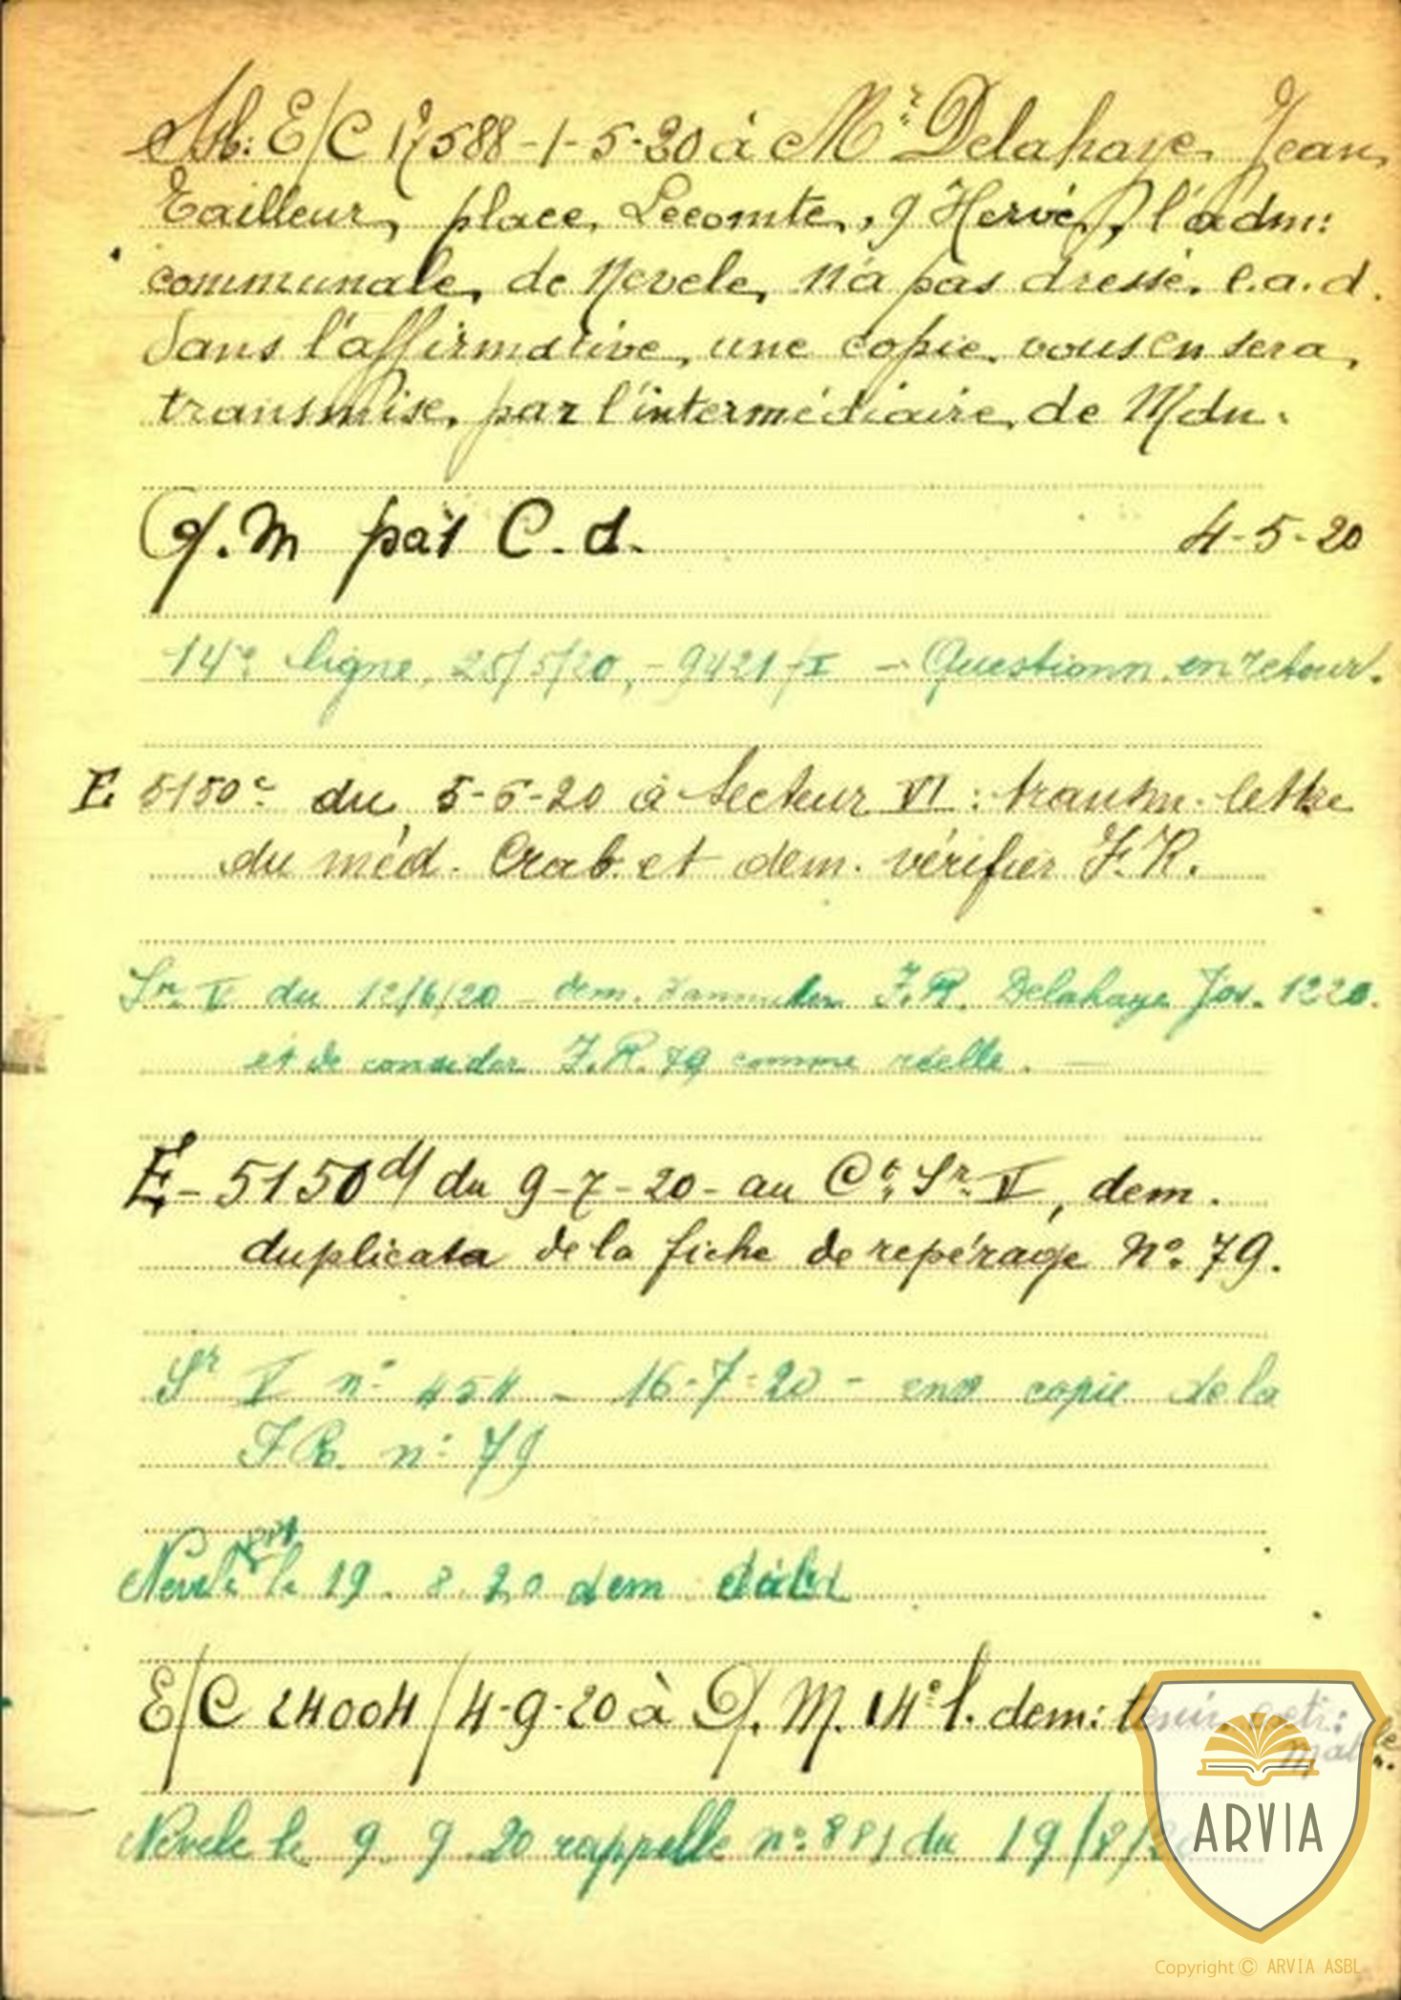 E/C 17588-1-5-20 à Mr Delahaye Jean
Tailleur, place Lecomte, 9 Hervé, l'adm:
communale, de Nevele, n'a pas dressé. e.a.d.
Dans l'affirmative, une copie vous en sera
transmise, par l'intermédiaire, de Mdn.
M pas C.d. 4-5-20
14e ligne, 25/5/20, - 9421/I - Questionn. en retour.
E 5150c du 5-6-20 à Secteur VI: transm. lettre
du méd. Crab. et dem. vérifier F.R.
Sr V du 12/6/20 - dem. d'annuler F.R. Delahaye Jos. 1220.
et de consider F.R. 79 comme réelle.
E- 5150d/ du 9-7-20- au Ct Sr V, dem.
duplicata de la fiche de repérage No 79.
Sr V no 454 - 16-7-20 - env copie de la
F.R. no 79
Nevele le 19.8.20 dem
E/C 24004/4-9-20 à M. 14e l. dem: tenir
Nevele le 9.9.20 rappelle no 881 du 19/8/20
ARVIA
Copyright © ARVIA ASBL